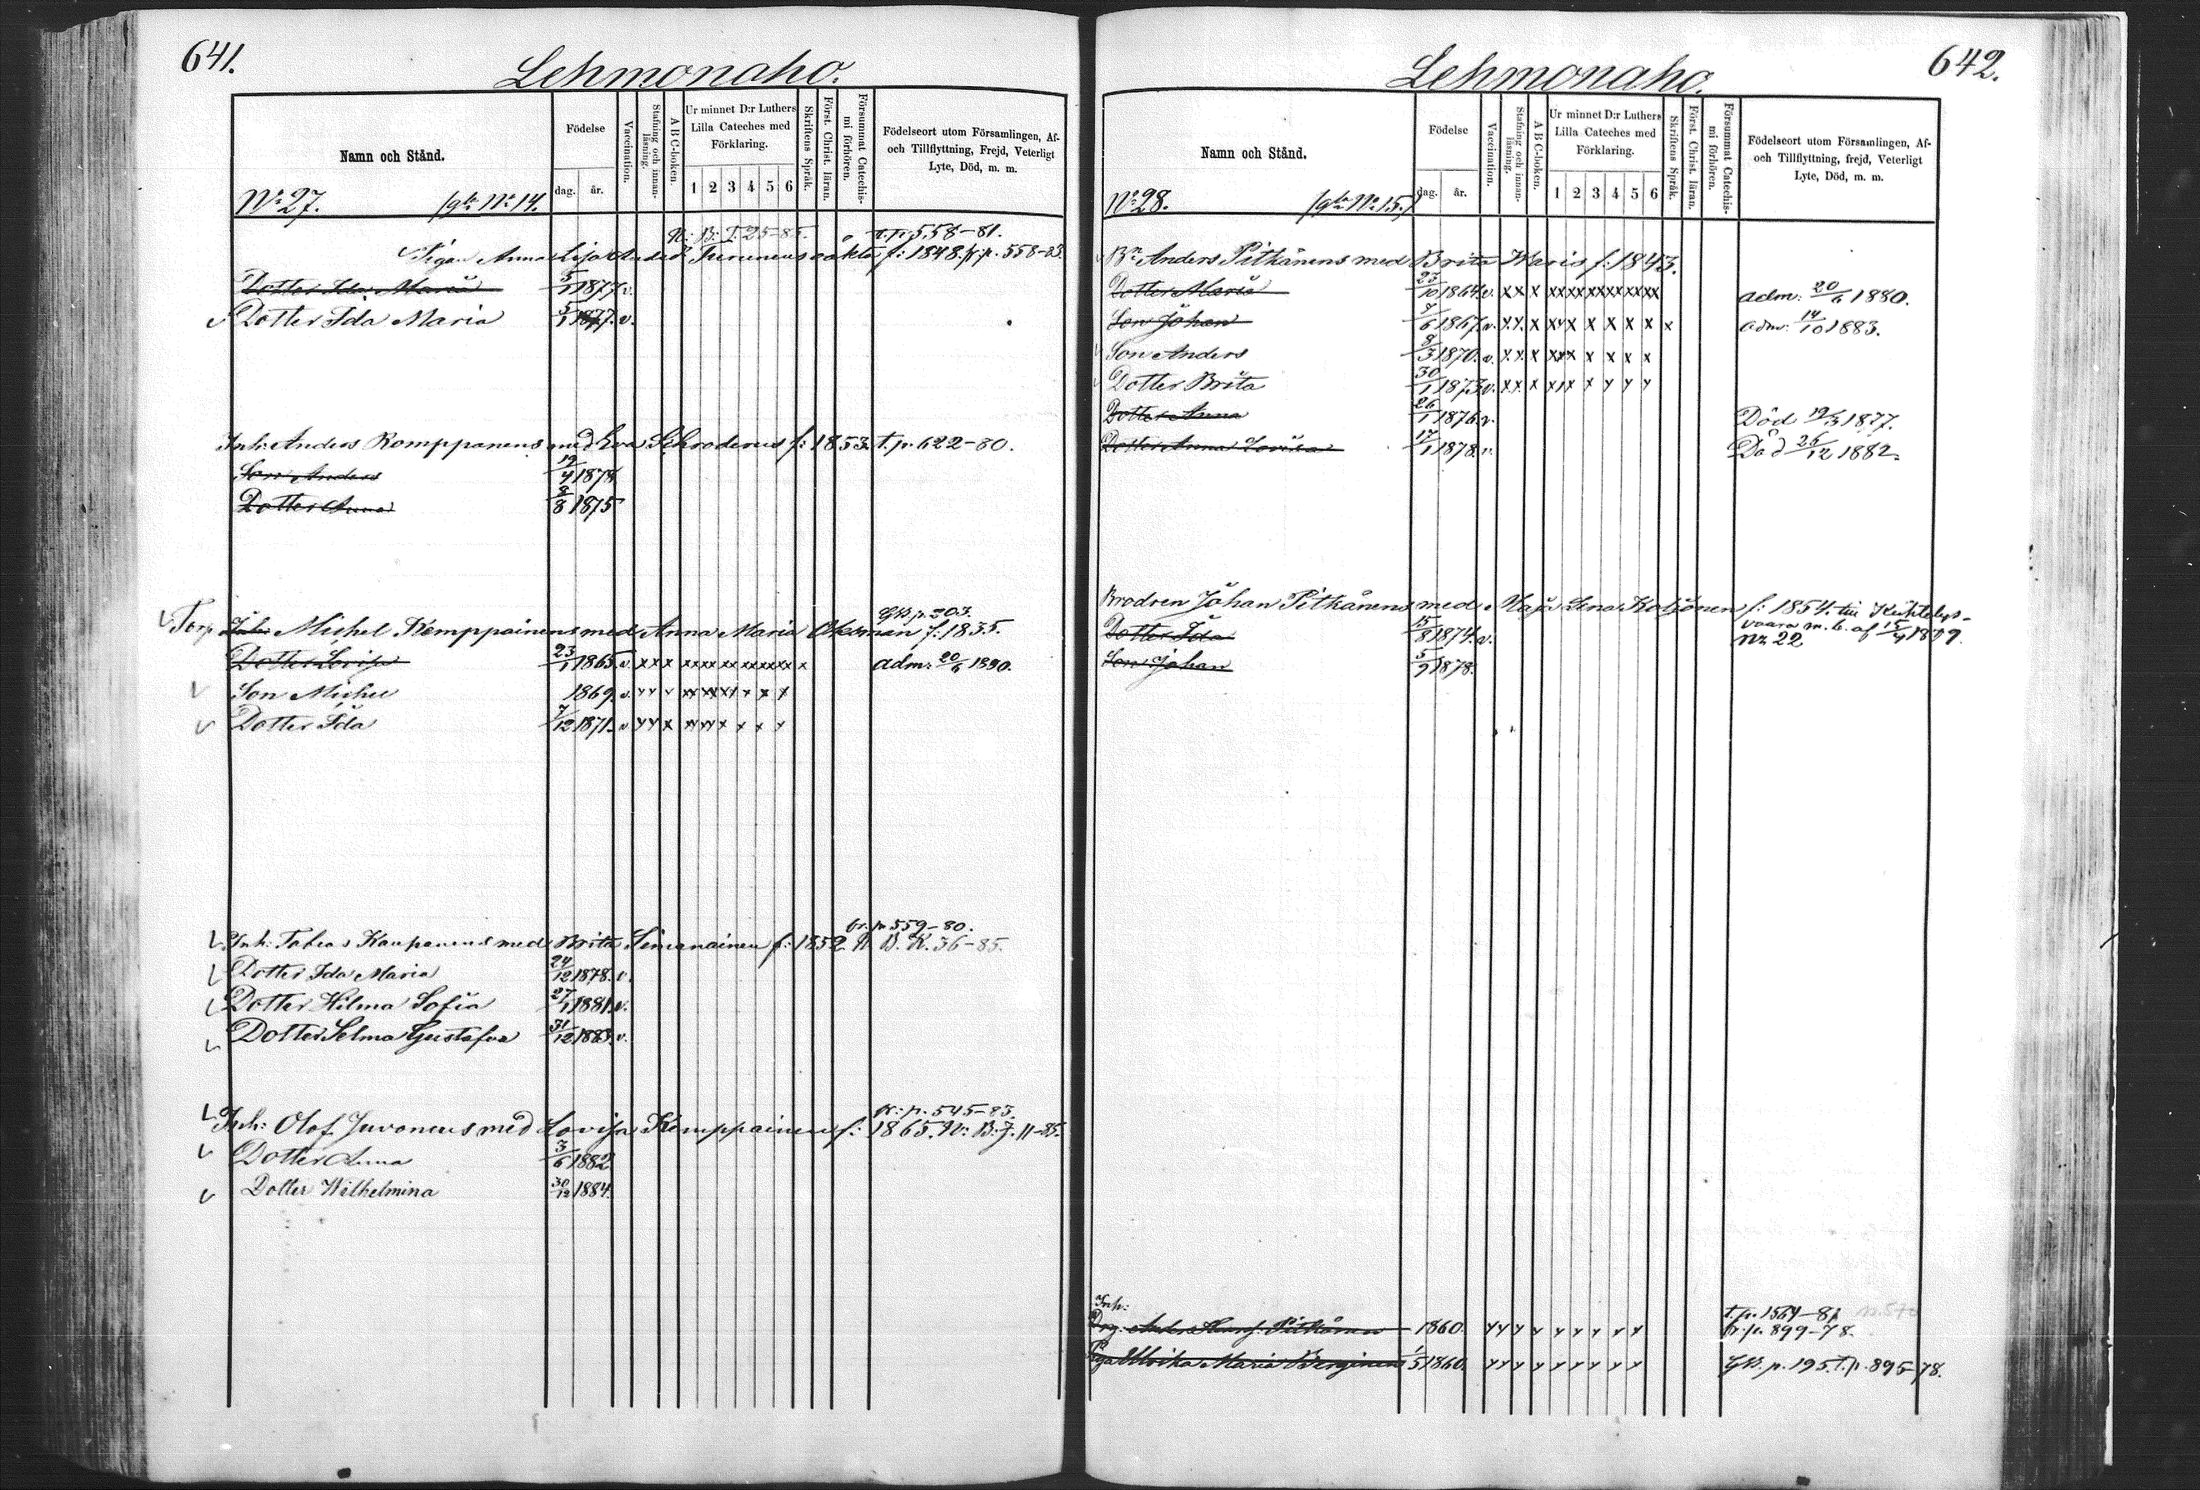 641.
Lehmonaho.
Namn och Stånd.
Födelse
dag. år.
Vaccination.
Stafning och innan-läsning.
A B C-boken.
Ur minnet D:r Luthers Lilla Cateches med Förklaring.
1 2 3 4 5 6
Skriftens Språk.
Först. Christ. läran.
Försummat Catechis-mi förhören.
Födelseort utom Församlingen, Af-och Tillflyttning, Frejd, Veterligt Lyte, Död, m. m.
No 27. No 14.
N: B: T. 25-85. t.p. 558-81.
Pigan Anna Lisa Turunens oäkta f: 1848. fr.p. 558-83.
Dotter Ida Maria 5/1 1877. v.
Dotter Ida Maria 5/1 1877. v.
Inh: Anders Romppanens med Eva Schroderus f: 1853. t.p. 622-80.
Son Anders 19/4 1878
Dotter Anna 8/8 1875
GB. p. 303.
Torp. Inh: Michel Kemppainens med Anna Maria Oksman f: 1835.
Dotter Lovisa 23/1 1865. v xxx xxxxxxxxxxx x adm: 20/6 1880.
Son Michel 1869. v.
Dotter Ida 7/12 1871. v
fr. p. 559-80.
Inh: Tobias Kaupanens med Brita Simanainen f: 1852. N. B. K. 36-85.
Dotter Ida Maria 24/12 1878. v.
Dotter Hilma Sofia 27/1 1881. v.
Dotter Selma Gustafva 31/12 1883. v.
fr: p. 545-83.
Inh: Olof Juvonens med Lovisa Kemppainen f: 1865. N: B: J. 11-85.
Dotter Anna 3/6 1882
Dotter Wilhelmina 30/12 1884.
642.
Lehmonaho.
Namn och Stånd.
Födelse
dag. år.
Vaccination.
Stafning och innan-läsning.
A B C-boken.
Ur minnet D:r Luthers Lilla Cateches med Förklaring.
1 2 3 4 5 6
Skriftens Språk.
Först. Christ. läran.
Försummat Catechis-mi förhören.
Födelseort utom Församlingen, Af-och Tillflyttning, frejd, Veterligt Lyte, Död, m. m.
No 28. No 15.
Bn Anders Pitkänens med Brita Waris f: 1843.
Dotter Maria 23/10 1864. v. adm: 20/6 1880.
Son Johan 7/6 1867. v. adm: 14/10 1883.
Son Anders 8/3 1870. v.
Dotter Brita 30/1 1873. v.
Dotter Anna 26/1 1876. v. Död 19/3 1877.
Dotter Anna Lovisa 17/1 1878. v. Död 26/12 1882.
Brodren Johan Pitkänens med Kajs Lena Koljonen f: 1854. till Kiihtelys-
vaara m. b. af 15/4 1879.
Dotter Ida 15/8 1874. v. No 22
Son Johan 5/9 1878.
Inh:
Drg: Anders Pitkänen 1860. t. p. 1564-81
fr. p. 899-78.
Piga Ulrika Maria 1/5 1860. GB. p. 195. t. p. 895-78.